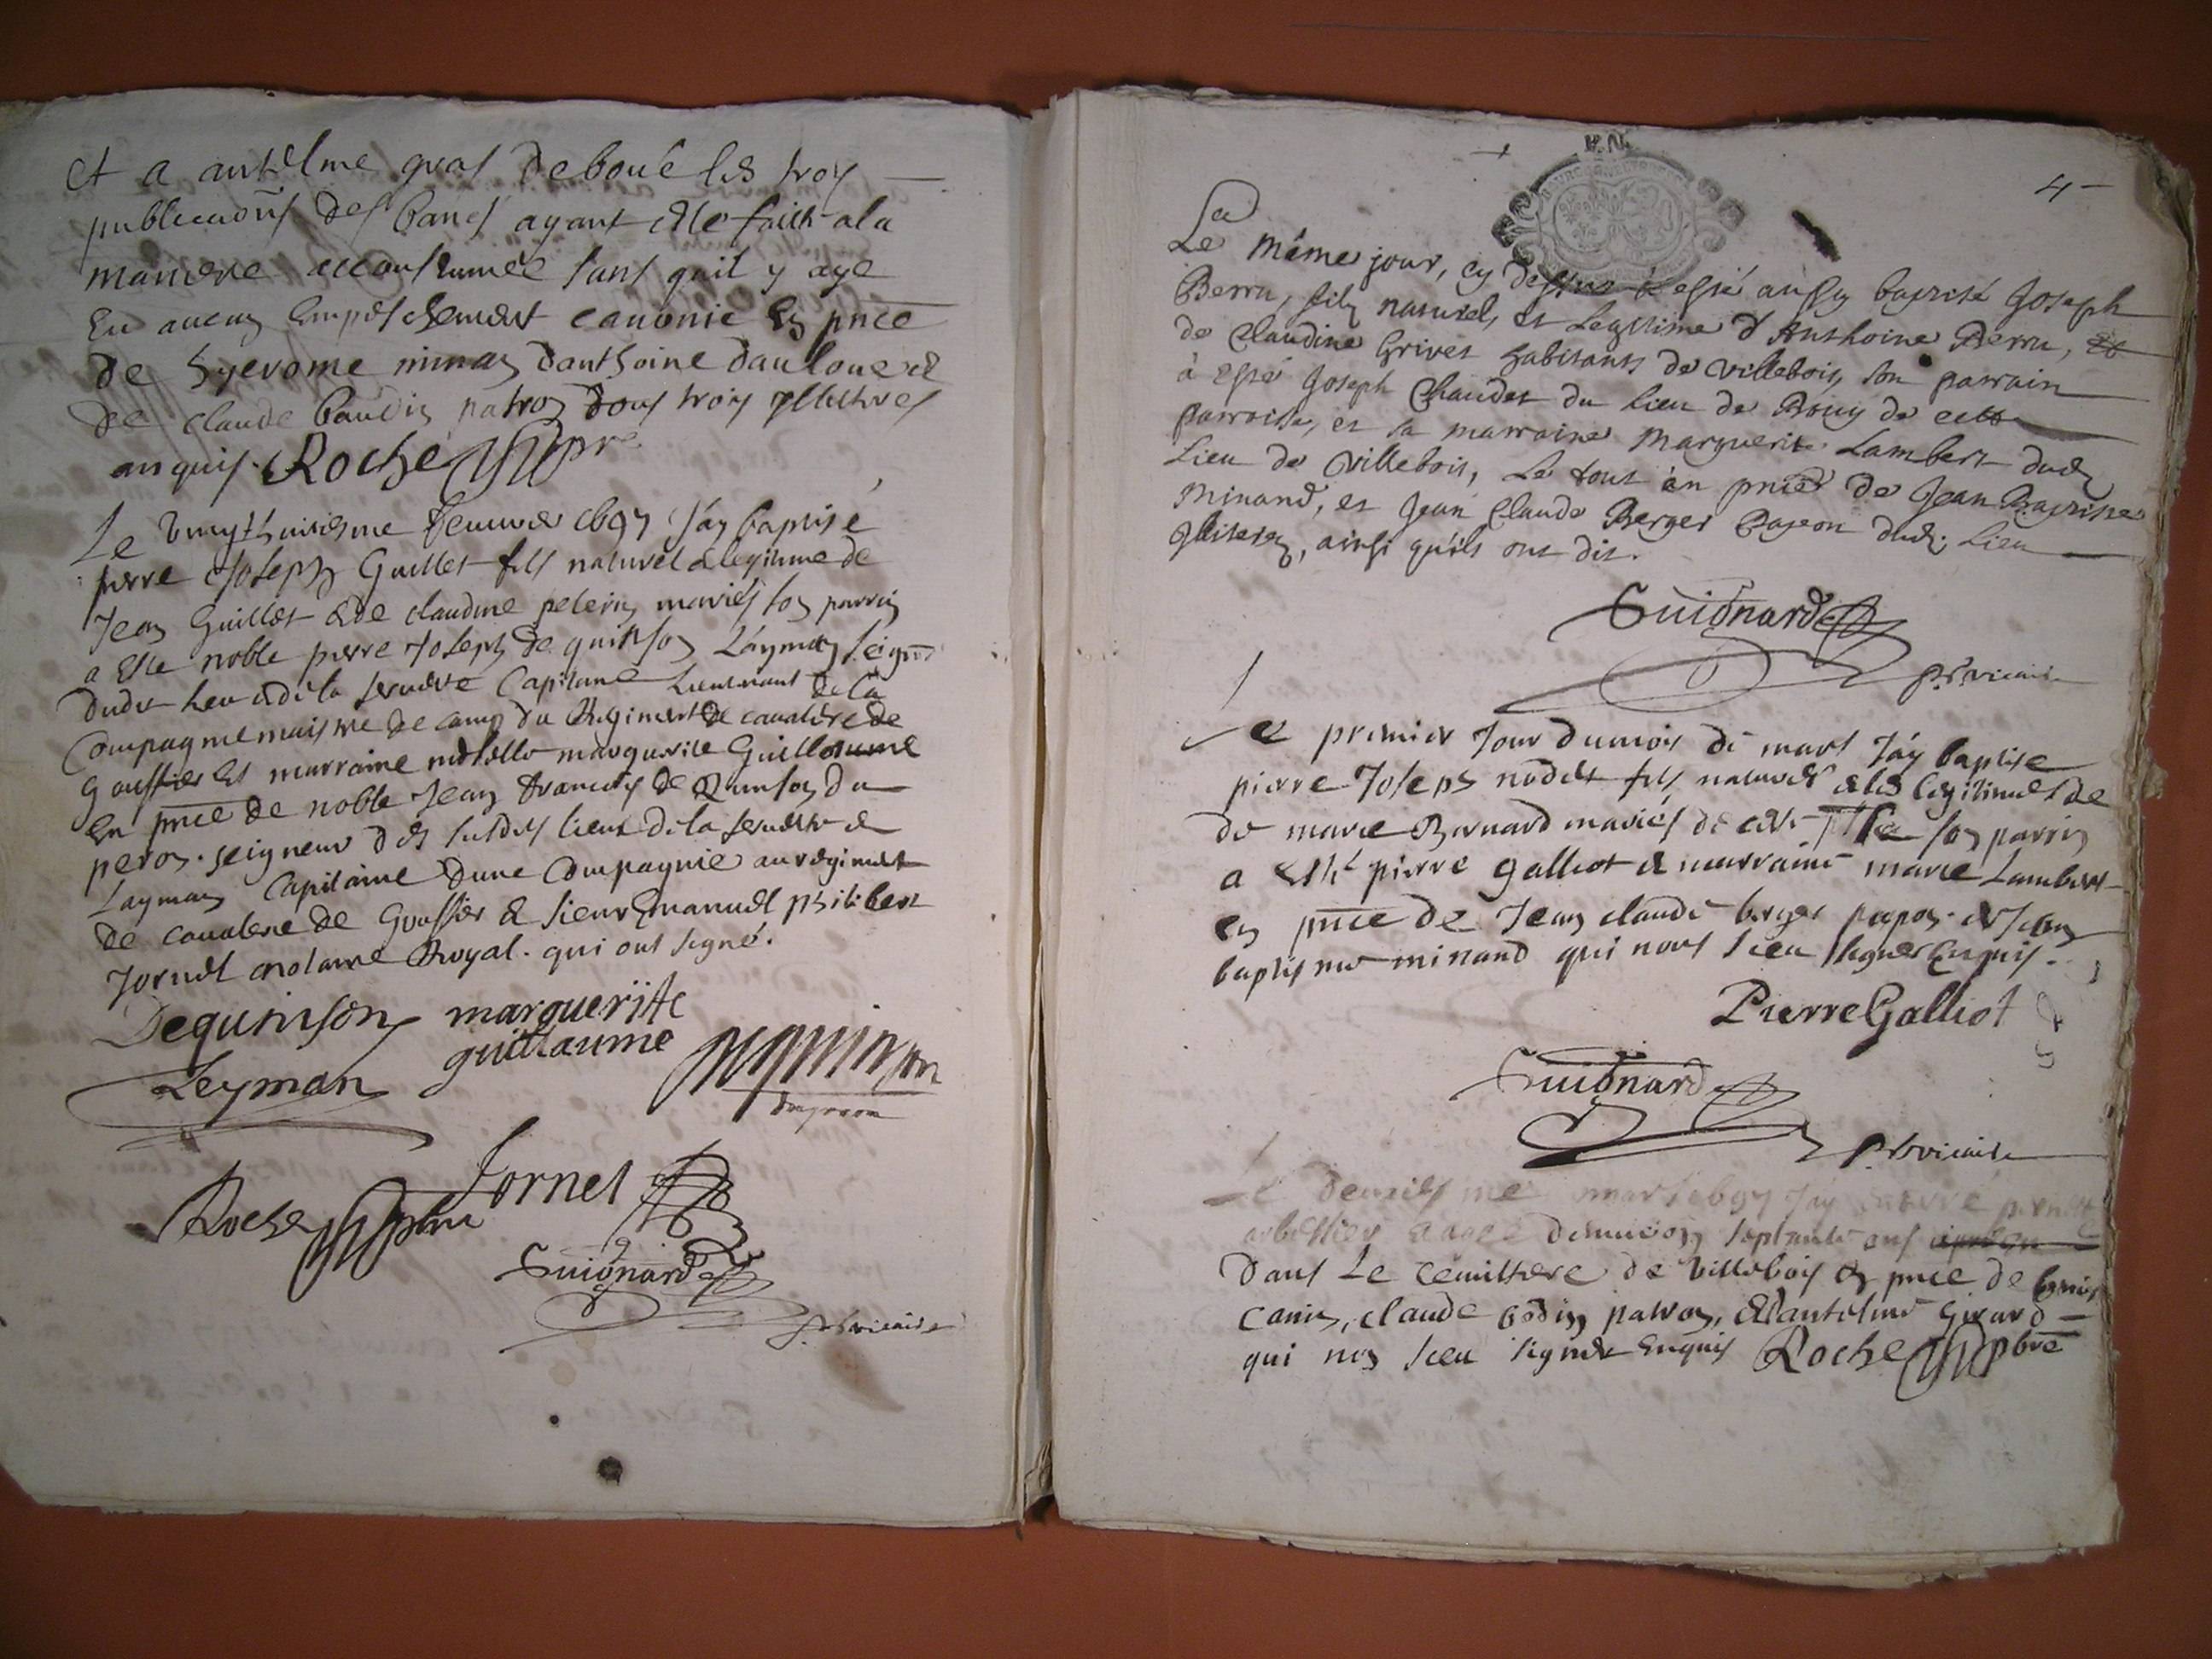 et a anthelme gras de boué les troys
publications des bancs ayant esté faict a la
maniere accoustumée sans quil y aye
Eu aucun Empeschement canonic En pnce
de hyerome minan danthoine
de claude baudin patron tous troys illitirés
anquis. Roche pre
Le vingthuitiesme feuvrier 1697 J'ay baptisé
pierre Joseph Guillet fils naturel & legitime de
Jean Guillet & de claudine pelerin mariés son parrin
a este noble pierre Joseph de quinson Layman seignr
dudt lieu & de la servette Capitane Lieutenant de la
Compagnie maistre de camp du Regiment de cavalerie de
gouffier Et marraine madlle marguerite Guillaume
En pnce de noble Jean francois de Quinson du
peron. seigneur des susdits lieux de la servette &
Layman Capitaine dune Compagnie au regiment
de cavalerie de Gouffier & sieur Emanuel philibert
Jornet notaire Royal. qui ont signé.
Dequinson margueritte
guillaume
Leyman
Jornet
Roche pbre
Guignard
p. vicaire
4
Le même jour, cy dessus à esté aussy baptisé Joseph
Berru, filz naturel, et Legitime d'Anthoine Berru, et
de Claudine Grivet habitants de villebois, son parrain
à esté Joseph Chaudet du lieu de Bouy de cette
parroisse, et sa marraine Marguerite Lambert dud
Lieu de Villebois, Le tout en pnce de Jean Baptiste
Minand, et Jean Claude Berger Papeon dud. Lieu
Illiterez, ainsi qu'ils ont dit.
Guignard
p. vicaire
Le premier Jour du mois de mars J'ay baptise
pierre Joseph nodet fils naturel & legitime de
de marie Bernard mariés de cette psse son parrin
a esté pierre galliot & marraine marie Lambert
en pnce de Jean claude berger papon. & Jean
baptiste minand qui nont sceu signer Enquis.
Pierre Galliot
Guignard
p. vicaire
Le mars 1697 J'ay
aagé denviron septante ans
Dans Le cemitiere de Villebois En pnce de
canis, claude bodin patron, & dantelme Girard
qui non sceu signer Enquis Roche pbre